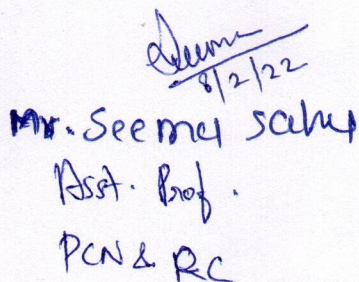 Seema
8/2/22
Mr. Seema Sahu
Asst. Prof.
PCN & RC